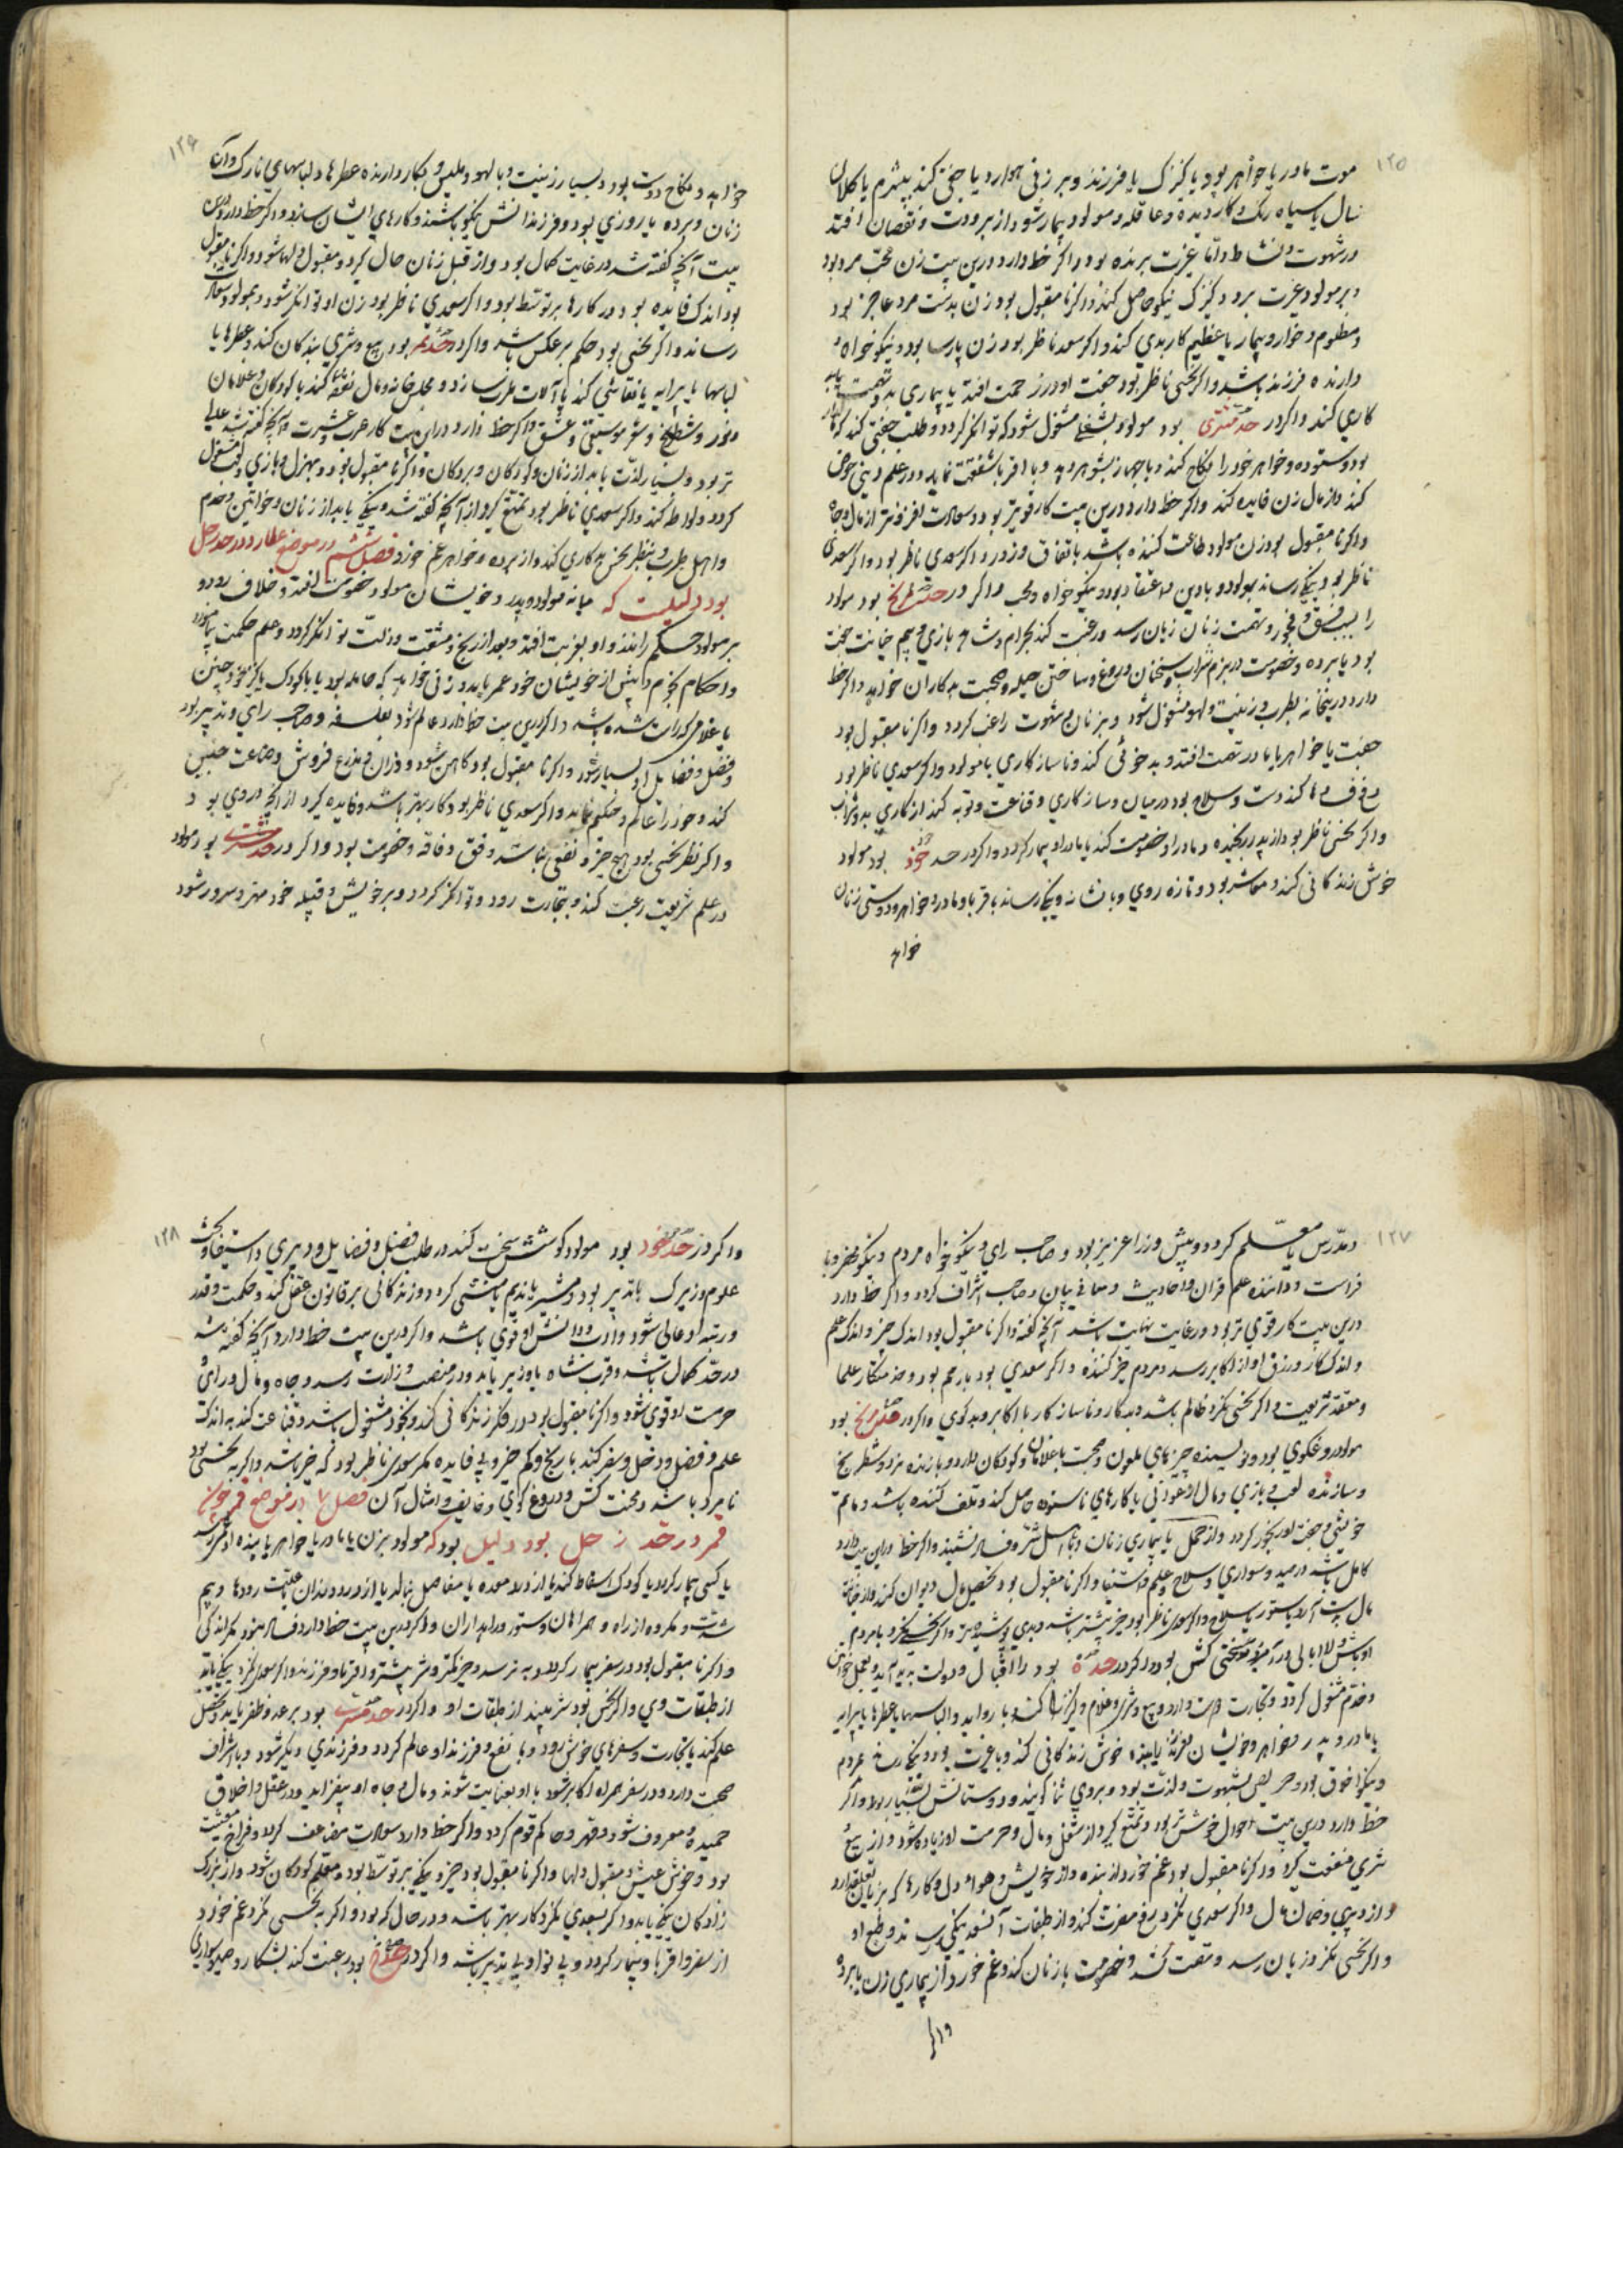 ۱۲۵
موت مادر یا خواهر بود یا کنیزک یا فرزند و بر زنی هموار دیا جفتی کند پیشرم یا کلان
سال یا سیاه رنگ و کار دیده و عاقله و مولود بیمار شود از برودت و نقصان افتد
در شهوت و نشاط و اما غیرت برنده بود و اگر خط دارد درین بیت زن محب مرد بود
و بر مولود غیرت برد و کنیزک نیکو حاصل کند و اگر نامقبول بود زن بدست مرد عاجز بود
و مظلوم و خوار و بیمار یا عظیم کار بدی کند و اگر سعد ناظر بود زن پارسا بود و نیکو خواه و
دارنده فرزند باشد و اگر نحسی ناظر بود جفت او در زحمت افتد یا بیماری بد و تهمت
کاری کند و اگر در حد مشتری بود مولود بشغلی مشغول شود که توانگر گردد و طلب جفتی کند که
بود ستوده و خواهر خود را نکاح کند و با جهاز بشوهر دهد و با اقربا شفقت نماید و در علم دینی خوض
کند و از مال زن فایده کند و اگر خط دارد درین بیت کار قویتر بود و سعادت افزونتر از مال و جاه
و اگر نامقبول بود زن مولود طاعت کننده باشد باتفاق و زور و اگر سعدی ناظر بود و اگر سعدی
ناظر بود نیکی رساند بمولود و با دین و اعتقاد بود و نیکو خواه و محب و اگر در حد مریخ بود مولود
را بسبب فسق و فجور و تهمت زنان زیان رسد و رغبت کند بحرام و شاهد بازی و بیم خیانت جفت
بود یا برده و خصومت در بزم شراب و سخنان دروغ و ساختن حیله و صحبت بدکاران خواهد و اگر خط
دارد درین خانه بطرب و زینت و لهو مشغول شود و بزنان و شهوت راغب گردد و اگر نامقبول بود
جفت یا خواهر یا مادر تهمت افتد و بد خوئی کند و ناسازگاری با مولود و اگر سعدی ناظر بود
کند دست و سلاح بود در میان و سازگاری و قناعت و توبه کند از کاری بد و شراب
و اگر نحسی ناظر بود از پدر رنجیده و مادر او خصومت کند یا مادر او بیمار گردد و اگر در حد خود بود مولود
خوش زندگانی کند و معاشر بود و تازه روی و با نشاط و نیکی رساند باقربا و مادر و خواهر و دوستی زنان
خواهد

۱۲۶
خواهد و نکاح دوست بود و بسیار زینت و با لهو و ملبس و بکار دارنده عطرها و لباسهای نازک و آن
زنان و برده یا روزی بود و فرزندانش نیکو باشند و کارهای ایشان سازد و اگر خط دارد درین
بیت آنچه گفته شد در غایت کمال بود و از قبل زنان حال گیرد و مقبول دلها شود و اگر نامقبول
بود اندک فایده بود و در کارها بر توسط بود و اگر سعدی ناظر بود زن او توانگر شود و بمولود سعادت
رساند و اگر نحسی بود حکم بر عکس باشد و اگر در حد قمر بود بیع و شری بندگان کند و عطرها یا
لباسها یا پیرایه یا نقاشی کند یا آلات طرب سازد و مجلس خانه و مال نفقه کند با کودکان و غلامان
و نرد و شطرنج و شعر و موسیقی و عشق و اگر خط دارد درین بیت کار طرب و عشرت و آنچه گفته شد عالی
تر بود و بسیار لذت یابد از زنان و کودکان و بردگان و اگر نامقبول بود بهزل و بازی و لعب مشغول
گردد و لواطه کند و اگر سعدی ناظر بود تمتع گیرد از آنچه گفته شد و نیکی یابد از زنان و خواتین و خدم
و اهل طرب و بنظر نحس بدکاری کند و از برده و خواهر غم خورد فصل ششم در موضع عطارد در حد زحل
بود دلیلست که میانه مولود و پدر و خویشان مولود خصومت افتد و خلاف رود و
بر مولود حکم رانند و او بغربت افتد و بعد از رنج و مشقت و زلت توانگر گردد و علم حکمت بیاموزد
و احکام نجوم و بیش از خویشان خود عمر یابد و زنی خواهد که حامله بود یا با کودک یا کنیز خود چنین
یا غلامی که زاده شده باشد و اگر درین بیت خط دارد عالم شود بفلسفه و صاحب رای و تدبیر بود
و فضل و فضایل او بسیار شود و اگر نامقبول بود کاهن شود و وزان و مذرع فروش و صناعت چنین
کند و خود را عالم و حکیم نماید و اگر سعدی ناظر بود کار بهتر باشد و فایده گیرد از آنچه در وی بود و
و اگر نظر نحسی بود هیچ چیز و نفعی نباشد و فقر و فاقه و خصومت بود و اگر در حد مشتری بود مولود
در علم شریعت رغبت کند و بتجارت رود و توانگر گردد و بر خویش و قبیله خود مهتر و سرور شود

۱۲۷
و مدرس یا معلم گردد و پیش وزرا عزیز بود و صاحب رای و نیکو خواه مردم و نیکو محضر و با
فراست و داننده علم قرآن و احادیث و معانی بیان و صاحب اشراف گردد و اگر خط دارد
درین بیت کار قوی تر بود و در غایت نهایت باشد آنچه گفته و اگر نامقبول بود اندک چیز و اندک علم
و اندک کار و رزق او از اکابر رسد و مردم خیر کننده و اگر سعدی بود بارحم بود و خدمتکار علما
و معتقد شریعت و اگر نحسی نگرد ظالم باشد و بدکار و ناسازگار با اکابر و بدگوی و اگر در حد مریخ بود
مولود دروغگوی بود و نویسنده چیزهای ملعون و صحبت با غلامان و کودکان دارد و بازنده نرد و شطرنج
و سازنده لعب و بازی و مال از عوانی یا کارهای ناستوده حاصل کند و تلف کننده باشد و ماتم
خویش و جفت او رنجور گردد و از حمل یا بیماری زنان و با اهل شر و فساد نشیند و اگر خط درین بیت دارد
کامل باشد در صید و سواری و سلاح و علم و استیفا و اگر نامقبول بود تحصیل مال دیوان کند و از خانه
مال بدست آرد یا ستور یا سلاح و اگر سعدی ناظر بود خیر بیشتر باشد و بدی پوشیده تر و اگر نحسی نگرد با مردم
اوباش و لاابالی در آمیزد و سختی کش بود و اگر در حد زهره بود را اقبال و دولت بدید آید و بعمل خواتین
و خدم مشغول گردد و تجارت دوست دارد و بیع و شری و غلام و کنیزک کند و با روایه و الباسها یا عطرها یا پیرایه
یا مادر و پدر و خواهر و خویشان نفع کند یا بنده خوش زندگانی کند و با غیرت بود و نیکخواه مردم
و نیکو اخلاق بود و حریص بشهوت و لذت بود و بروی ثنا گویند و دوستانش بسیار بود و اگر
خط دارد درین بیت احوال خوش تر بود و تمتع گیرد از شغل و مال و حرمت او زیاده شود و از بیع
شری منفعت گیرد و اگر نامقبول بود غم خورد از بنده و از خویش و هوا دل و کارها که بزنان تعلق دارد
و از دبیری و ضمان مال و اگر سعدی نگرد رفع مضرت کند و از طبقات آنسعد نیکی رسد و طبع او
و اگر نحسی نگرد زیان رسد و مقت کشد و خصومت با زنان کند و غم خورد از بیماری زن یا برده
و اگر

۱۲۸
و اگر در حد خود بود مولود کوشش سخت کند در طلب فضل و فضایل و دبیری و استیفا و بحث
علوم و زیرک باتدبیر بود و مشیر یا ندیم یا منشی گردد و زندگانی بر قانون عقل کند و حکمت و قدر
و رتبه او عالی شود و رای و دانش او قوی باشد و اگر درین بیت خط دارد آنچه گفته شد
در حد کمال باشد و قرب شاه یا وزیر یابد و در منصب وزارت رسد و جاه و مال و رای
حرمت او قوی شود و اگر نامقبول بود در فکر زندگانی کند و بخود مشغول باشد و قناعت کند باندک
علم و فضل و دخل و سفر کند با رنج و کم چیز و بی فایده مگر سعدی ناظر بود که خیر باشد و اگر به نحسی بود
نامراد باشد و محنت کش و دروغ گوی و خایف و امثال آن فصل ۷ در موضع قمر چون
قمر در حد زحل بود دلیل بود که مولود بزن یا مادر یا خواهر یا بنده او شر رسد
یا کسی بیمار گردد یا کودک اسقاط کند یا از درد معده یا مفاصل بنالد یا از درد دندان یا علت رودها و بیم
شدت و مکروه از راه و همراهان و ستور و راهداران و اگر درین بیت خط دارد فساد نبود مگر اندکی
و اگر نامقبول بود در سفر بیمار گردد و بد ترسد و چیز کمتر و شر بیشتر و اقربا و فرزند و اگر سعدی نگرد نیکی یابد
از طبقات وی و اگر نحس بود شر بیند از طبقات او و اگر در حد مشتری بود بر عدو ظفر یابد و تحصل
علم کند یا تجارت و سفرهای خوش رود و با نفع و فرزند او عالم گردد و فرزندی دیگر شود و با اشراف
صحبت دارد و در سفر همراه اکابر شود یا او بعنایت شوند و مال و جاه او بیفزاید و در عقل و اخلاق
حمیده و معروف شود و مهتر و حاکم قوم گردد و اگر خط دارد سعادت مضاعف گردد و فراخ معیشت
بود و خوش عیش و مقبول دلها و اگر نامقبول بود چیز و نیکی بر توسط بود و معلم کودکان شود و از بزرگ
زادگان نیکی یابد و اگر بسعدی نگرد کار بهتر باشد و در حال که بود و اگر به نحسی نگرد غم خورد
از سفر و اقربا و بیمار گردد و بی نوا و بی تدبیر باشد و اگر در حد مریخ بود رغبت کند بشکار و صید و سواری